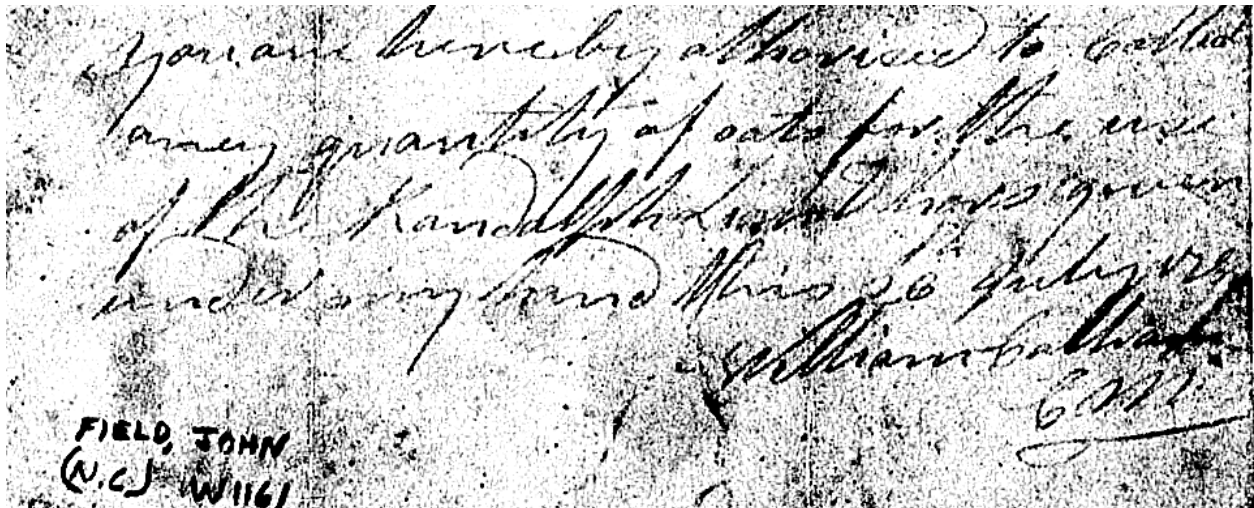 you are hereby athorised to Collect
aney quantity of oats for the use
of the Randolph Light hors given
under my hand this 26th July 178
William
C M
FIELD, JOHN
(N.C.) W1161